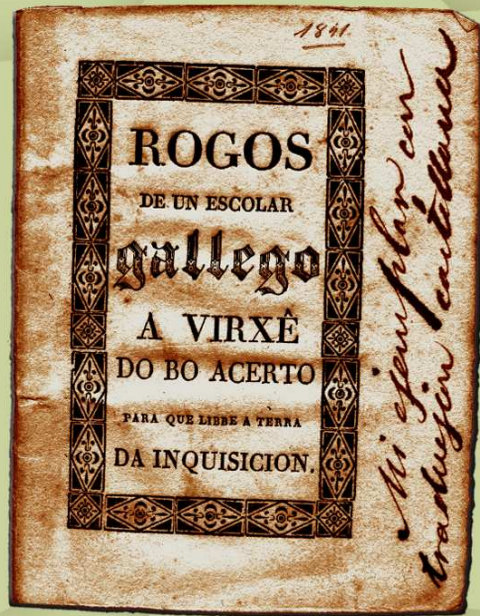 1841
ROGOS
DE UN ESCOLAR
gallego
A VIRXÊ
DO BO ACERTO
PARA QUE LIBBE A TERRA
DA INQUISICION.
Mi ejemplar con
traduccion castellana